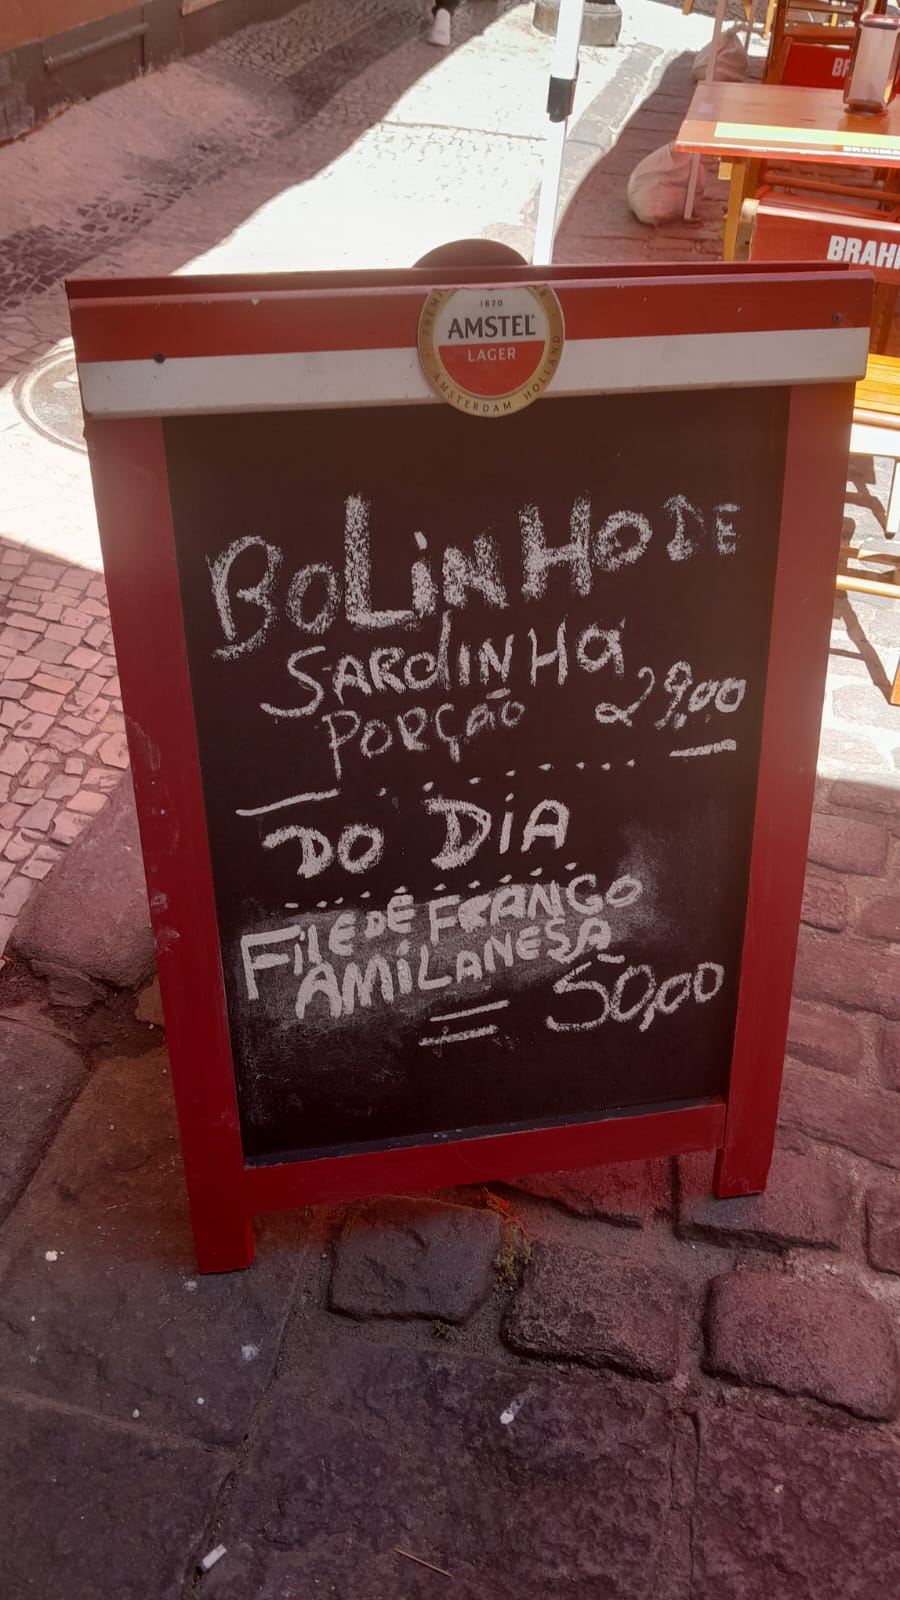 BRAH
BRAHMA
BRAHM
1870
PREMI
AMSTEL
LAGER
AMSTERDAM HOLLAND
BOLINHO DE
SARDINHA
PORÇÃO 29,00
DO DIA
FILE DE FRANGO
AMILANESA
50,00